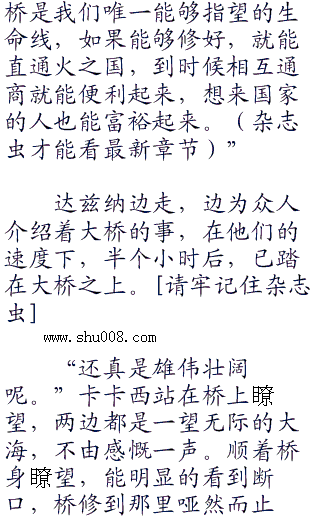 桥是我们唯一能够指望的生
命线，如果能够修好，就能
直通火之国，到时候相互通
商就能便利起来，想来国家
的人也能富裕起来。（杂志
虫才能看最新章节）”
达兹纳边走，边为众人
介绍着大桥的事，在他们的
速度下，半个小时后，已踏
在大桥之上。[请牢记住杂志
虫]
www.shu008.com
“还真是雄伟壮阔
呢。”卡卡西站在桥上瞭
望，两边都是一望无际的大
海，不由感慨一声。顺着桥
身瞭望，能明显的看到断
口，桥修到那里哑然而止